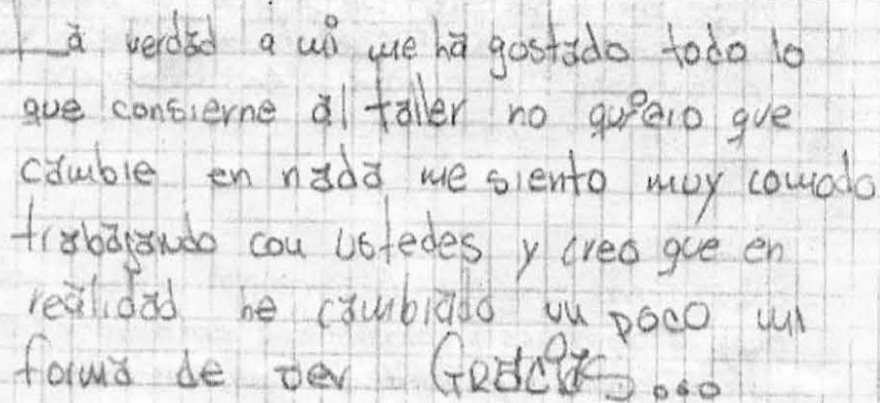 La verdad a mi me ha gostado todo lo
que consierne al taller no quiero que
cambie en nada me siento muy comodo
trabajando con ustedes y creo que en
realidad he cambiado un poco mi
forma de ver GRacias...